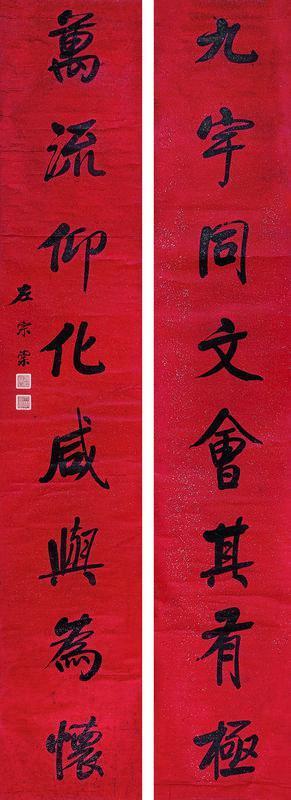 九宇同文會其有極
萬流仰化咸與為懷
左宗棠